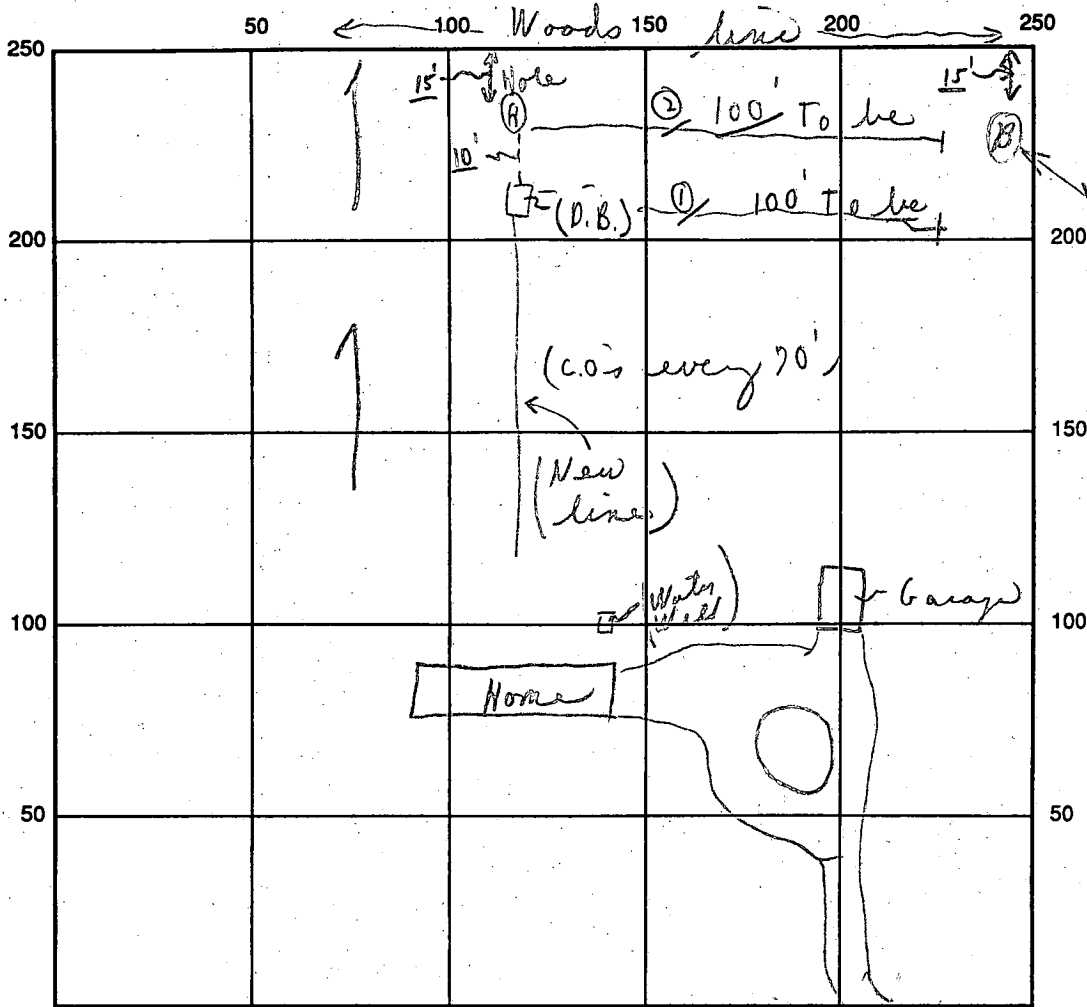 50 100 150 200 250
Woods line
250
15'
Hole
15'
(A)
② 100' To be
(B)
10'
(D.B.)
① 100' To be
200 200
(C.O.'s every 70')
150 150
(New
lines)
(Water
Well)
Garage
100 100
Home
50 50